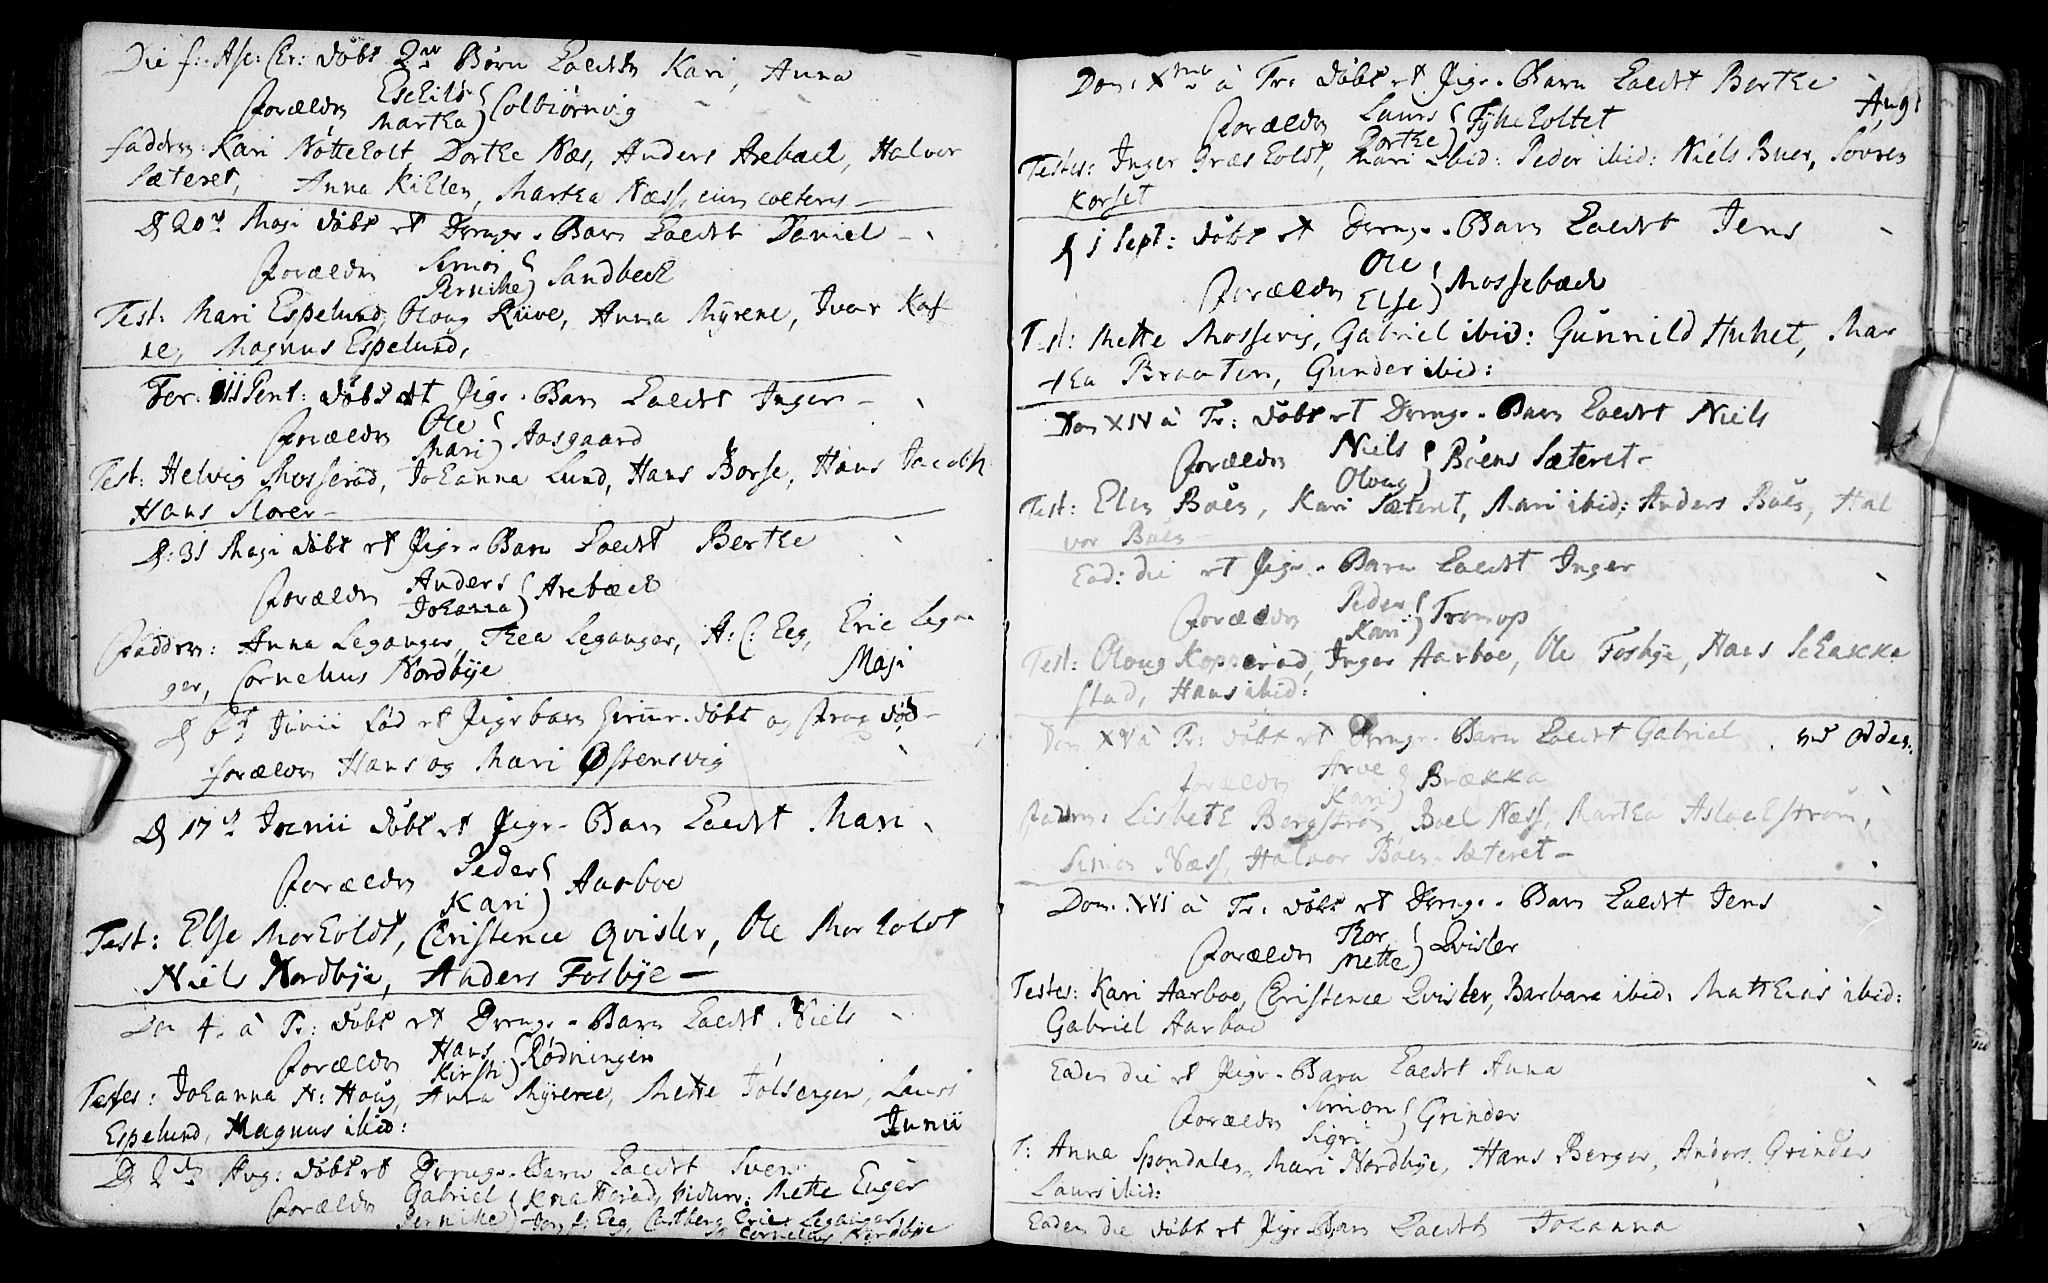 Die f: Asc: Chr: døbt 2de Børn kaldt Kari, Anna
Forældre Eschild Martha Colbiørnvig
Faddere: Kari Nøtteholt, Dorthe Næs, Anders Arebæck, Halvor
Sæteret, Anna Kihlen, Martha Næss, cum cæteris
D 20de Maji døbt et Drenge-Barn kaldt Daniel
Forældre Simon Pernille Sandbeck
Test: Mari Espelund, Oloug Riive, Anna Myrene, Ivar
Magnus Espelund,
Fer: iii Pent: døbt et Pige-Barn kaldt Inger
Forældre Ole Mari Aasgaard
Test: Helvig Mosserød, Johanna Lund, Hans Borse, Hans Jacobs
Hans Slorer
D: 31 Maji døbt et Pige-Barn kaldt Berthe
Forældre Anders Johanna Arebæck
Faddere: Anna Leganger, Thea Leganger, A: C: Eeg, Eric Legan
ger, Cornelius Nordbye
Maji
D 6t Junii fød et Pigebarn hiemme-døbt og strax død
forældre Hans og Mari Østensvig
D 17de Junii døbt et Pige-Barn kaldt Mari
Forældre Peder Kari Aarboe
Test: Else Morholdt, Christence Qvisler, Ole Morholdt
Niels Nordbye, Anders Fosbye
Dom 4. à Tr: døbt et Drenge-Barn kaldt Niels
Forældre Hans Kirsti Rødningen
Testes: Johanna N: Houg, Anna Myrene, Mette Tolsergen, Laurs
Espelund, Magnus ibid:
Junii
D 2den Aug: døbt et Drenge-Barn kaldt Sven
Forældre Gabriel Pernille Knatterød, Mette Enger
Eeg, Castberg, Eric Leganger,
Cornelius Nordbye
Dom: Xma à Tr: døbt et Pige-Barn kaldt Berthe
Aug:
Forældre Laurs Dorthe Fykeholtet
Testes: Inger Græsholdt, Mari ibid: Peder ibid: Niels Buer, Søvren
Korset
D 1 Sept: døbt et Drenge-Barn kaldt Jens
Forældre Ole Else Mossebæck
Test: Mette Mossevig, Gabriel ibid: Gunnild Huhet, Mar
tha Braaten, Gunder ibid:
Dom XIV à Tr: døbt et Drenge-Barn kaldt Niels
Forældre Niels Oloug Bøens Sæteret
Test: Elen Bøen, Kari Sæteret, Mari ibid: Anders Bøen, Hal
vor Bøen
Ead: die et Pige-Barn kaldt Inger
Forældre Peder Kari Tromop
Test: Oloug Kopperød, Inger Aarboe, Ole Fosbye, Hans Schakke
stad, Hans ibid:
Dom XV à Tr: døbt et Drenge-Barn kaldt Gabriel . ved Odden.
Forældre Arve Kari Brækka
Faddere: Lisbeth Bergstrøm, Boel Næss, Martha Aslachstrøm,
Simon Næss, Halvor Bøen-Sæteret
Dom: XVI à Tr: døbt et Drenge-Barn kaldt Jens
Forældre Thor Mette Qvisler
Testes: Kari Aarboe, Christence Qvisler, Barbara ibid: Matthias ibid:
Gabriel Aarboe
Eadem die et Pige-Barn kaldt Anna
Forældre Simon Sigri Grinder
T: Anna Spondalen, Mari Nordbye, Hans Berger, Anders Grinder
Laurs ibid:
Eadem die døbt et Pige-Barn kaldt Johanna